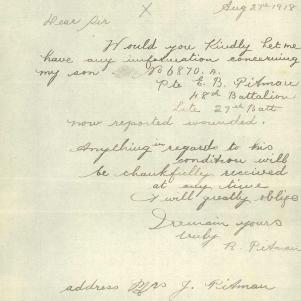 Aug 27th 1918
Dear Sir
X
Would you Kindly let me
have any information concerning
my son No 6870. A.
Pte E. B. Pitman
48th Battalion
Late 27th Batt
now reported wounded.
Anything in regards to his
condition will
be thankfully received
at any time
I will greatly oblige
I remain yours
truly
Pitman
address Mrs J. Pitman